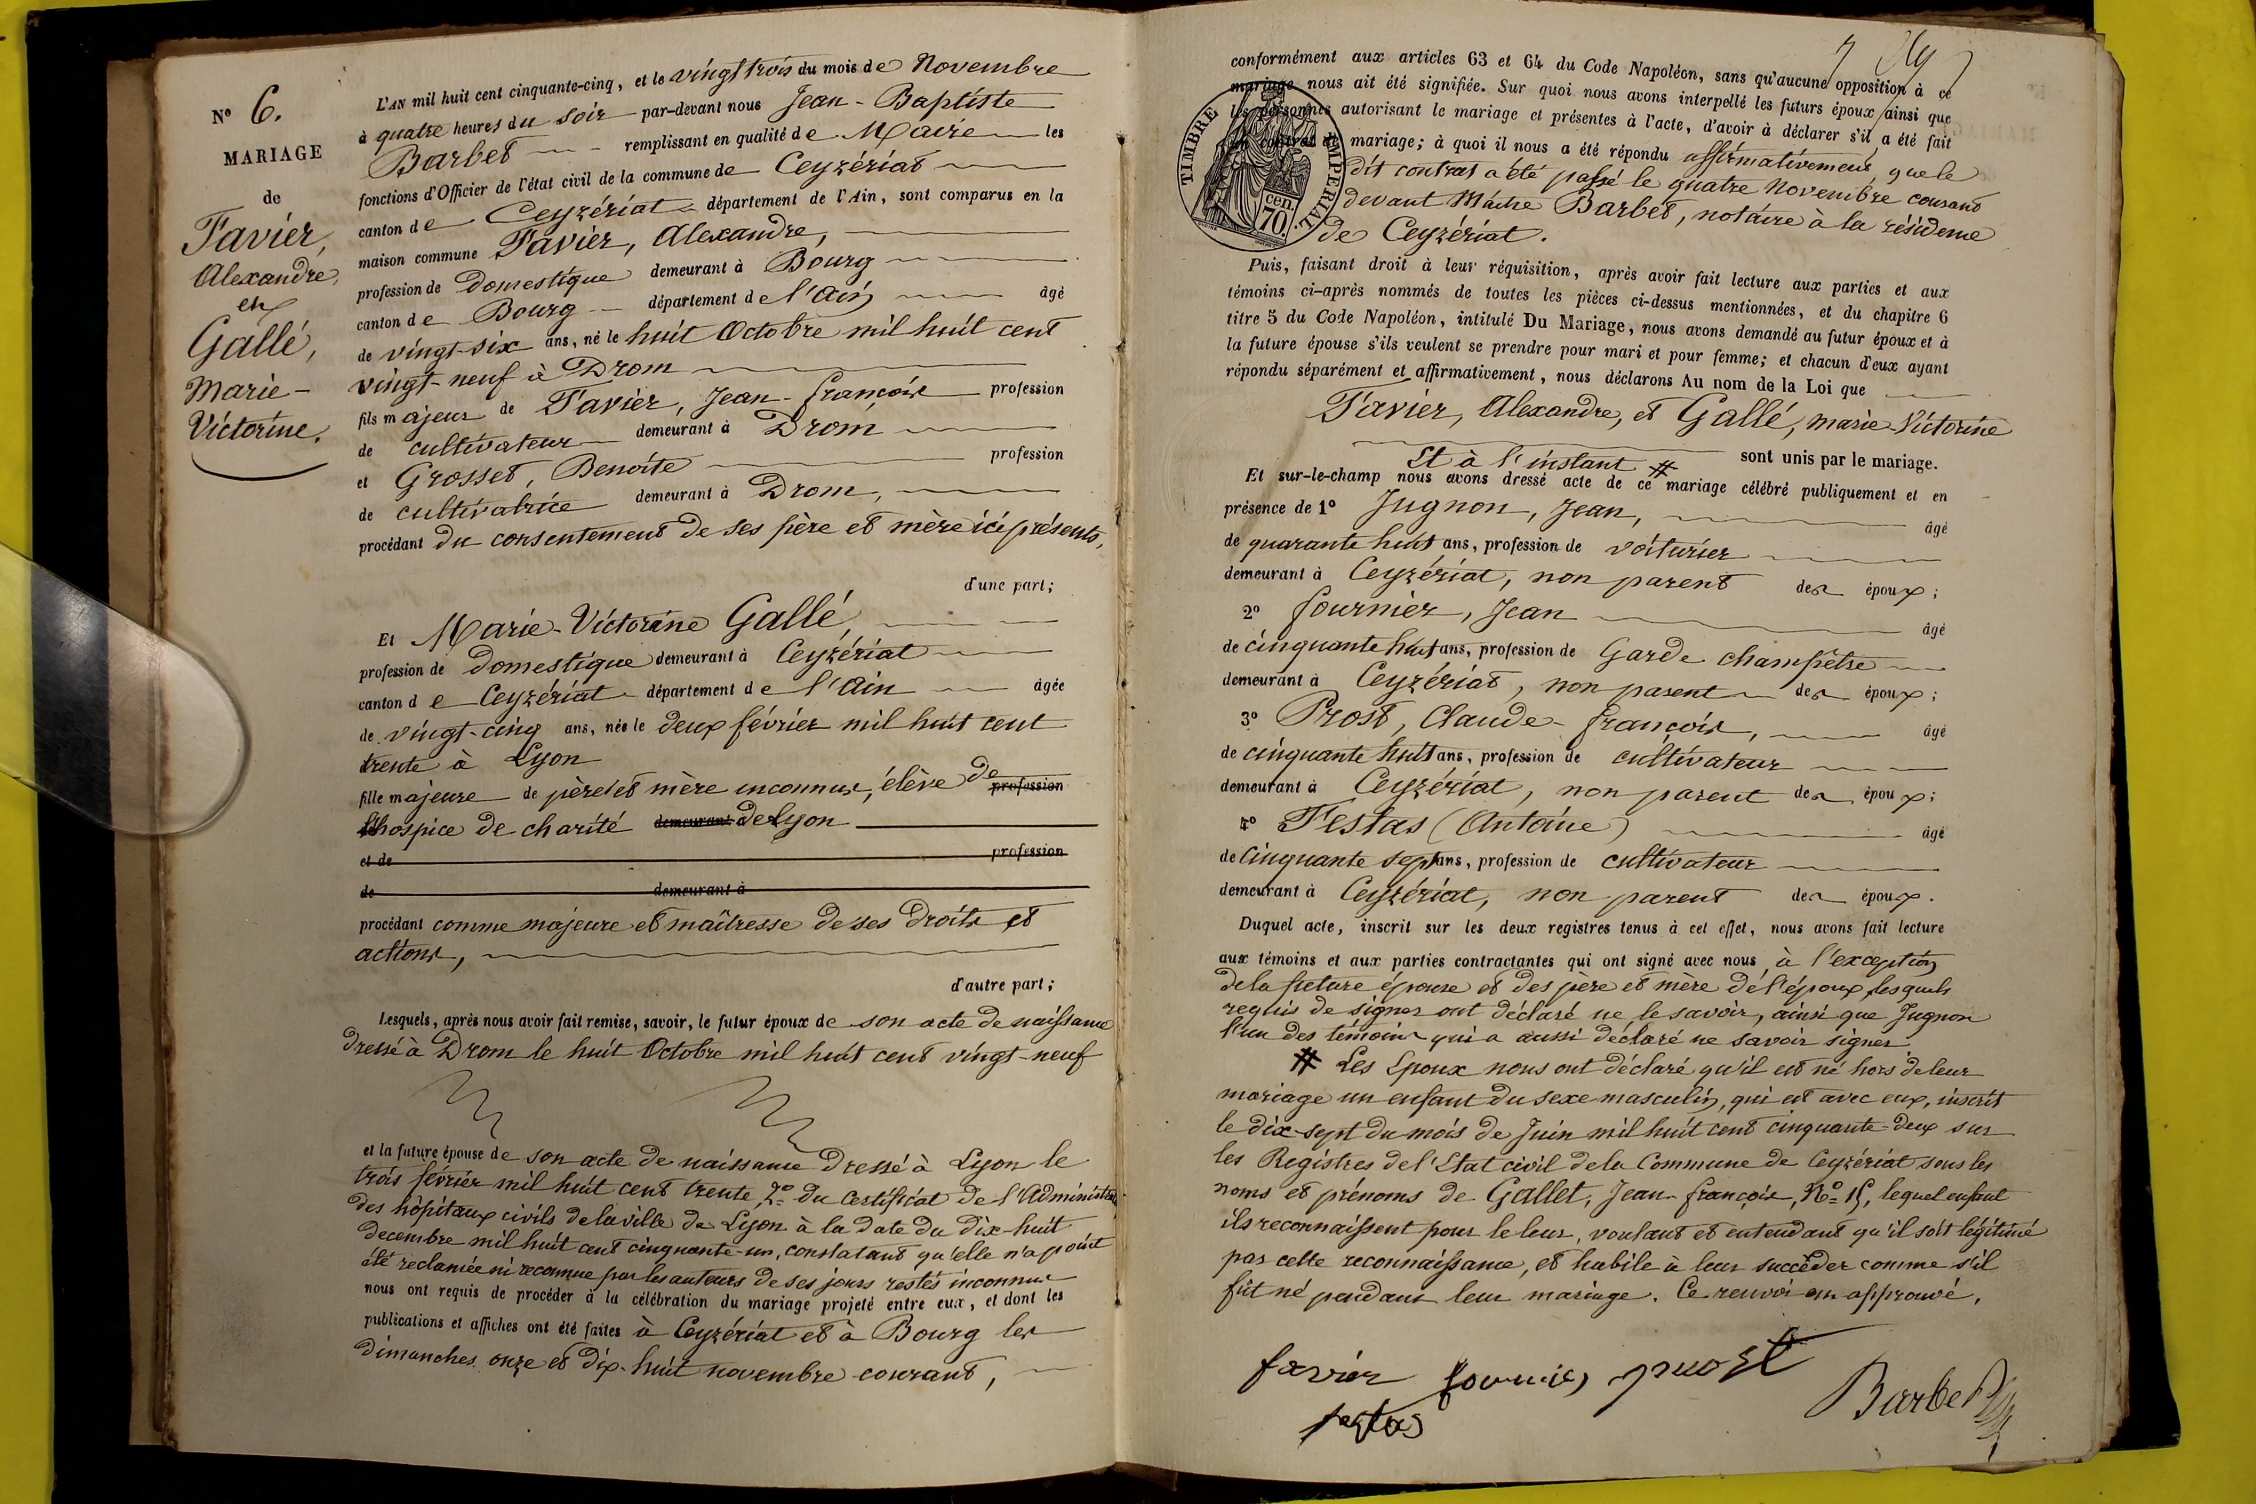 N° 6.
MARIAGE
de
Favier,
Alexandre,
et
Gallé,
Marie-
Victorine.
L'AN mil huit cent cinquante-cinq, et le vingt trois du mois de Novembre
à quatre heures du soir par-devant nous Jean-Baptiste
Barbet remplissant en qualité de Maire les
fonctions d'Officier de l'état civil de la commune de Ceyzériat
canton de Ceyzériat département de l'Ain, sont comparus en la
maison commune Favier, Alexandre,
profession de domestique demeurant à Bourg
canton de Bourg département de l'Ain âgé
de vingt-six ans, né le huit Octobre mil huit cent
vingt-neuf à Drom
fils majeur de Favier, Jean-françois profession
de cultivateur demeurant à Drom
et Grosset, Benoite profession
de cultivatrice demeurant à Drom,
procédant du consentement de ses père et mère ici présents,
d'une part;
Et Marie-Victorine Gallé,
profession de domestique demeurant à Ceyzériat
canton de Ceyzériat département de l'Ain âgée
de vingt-cinq ans, née le deux février mil huit cent
trente à Lyon
fille majeure de père et mère inconnus, élève de profession
l'hospice de charité demeurant à de Lyon
et de profession
de demeurant à
procédant comme majeure et maîtresse de ses droits et
actions,
d'autre part;
Lesquels, après nous avoir fait remise, savoir, le futur époux de son acte de naissance
dressé à Drom le huit Octobre mil huit cent vingt-neuf
et la future épouse de son acte de naissance dressé à Lyon le
trois février mil huit cent trente, 2° du Certificat de l'Administration
des hôpitaux civils de la ville de Lyon à la date du dix-huit
decembre mil huit cent cinquante-un, constatant qu'elle n'a point
été reclamée ni reconnue par les auteurs de ses jours restés inconnus
nous ont requis de procéder à la célébration du mariage projeté entre eux, et dont les
publications et affiches ont été faites à Ceyzériat et à Bourg les
dimanches onze et dix-huit novembre courant,
conformément aux articles 63 et 64 du Code Napoléon, sans qu'aucune opposition à ce
mariage nous ait été signifiée. Sur quoi nous avons interpellé les futurs époux ainsi que
les personnes autorisant le mariage et présentes à l'acte, d'avoir à déclarer s'il a été fait
un contrat de mariage; à quoi il nous a été répondu affirmativement, que le
dit contrat a été passé le quatre Novembre courant
devant Maître Barbet, notaire à la résidence
de Ceyzériat.
TIMBRE IMPERIAL
70. cen.
Puis, faisant droit à leur réquisition, après avoir fait lecture aux parties et aux
témoins ci-après nommés de toutes les pièces ci-dessus mentionnées, et du chapitre 6
titre 5 du Code Napoléon, intitulé Du Mariage, nous avons demandé au futur époux et à
la future épouse s'ils veulent se prendre pour mari et pour femme; et chacun d'eux ayant
répondu séparément et affirmativement, nous déclarons Au nom de la Loi que
Favier, Alexandre, et Gallé, marie-Victorine
sont unis par le mariage.
Et à l'instant #
Et sur-le-champ nous avons dressé acte de ce mariage célébré publiquement et en
présence de 1° Jugnon, Jean, âgé
de quarante huit ans, profession de voiturier
demeurant à Ceyzériat, non parent des époux;
2° fournier, Jean âgé
de cinquante huit ans, profession de Garde champêtre
demeurant à Ceyzériat, non parent des époux;
3° Prost, Claude-françois, âgé
de cinquante huit ans, profession de cultivateur
demeurant à Ceyzériat, non parent des époux;
4° Festas (Antoine) âgé
de Cinquante sept ans, profession de cultivateur
demeurant à Ceyzériat, non parent des époux.
Duquel acte, inscrit sur les deux registres tenus à cet effet, nous avons fait lecture
aux témoins et aux parties contractantes qui ont signé avec nous, à l'exception
de la future épouse et des père et mère de l'époux, lesquels
requis de signer ont déclaré ne le savoir, ainsi que Jugnon
l'un des témoins qui a aussi déclaré ne savoir signer
# Les Epoux nous ont déclaré qu'il est né hors de leur
mariage un enfant du sexe masculin, qui est avec eux, inscrit
le dix-sept du mois de Juin mil huit cent cinquante-deux sur
les Registres de l'Etat civil de la Commune de Ceyzériat sous les
noms et prénoms de Gallet, Jean-françois, N° 15, lequel enfant
ils reconnaissent pour le leur, voulant et entendant qu'il soit légitimé
par cette reconnaissance, et habile à leur succèder comme s'il
fût né pendant leur mariage. Ce renvoi approuvé.
favier fournier prost
festas
Barbet